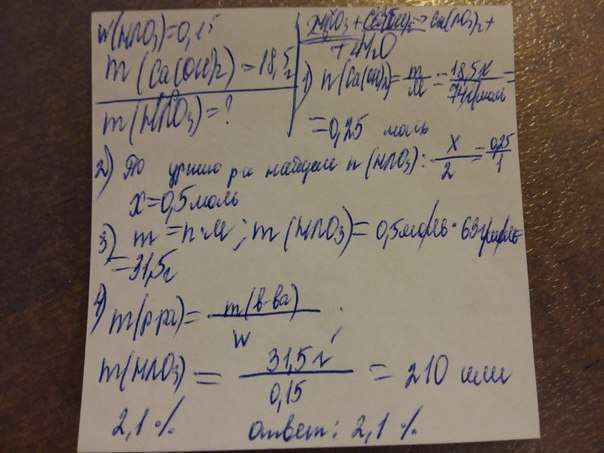 w(HNO3)=0,15
m(Ca(OH)2)=18,5г
m(HNO3)=?
2HNO3+Ca(OH)2→Ca(NO3)2+
+2H2O
1) n(Ca(OH)2)=m/M=18,5г/74г/моль=
=0,25 моль
2) По ур-нию р-и найдем n(HNO3): x/2=0,25/1
x=0,5моль
3) m=n·M; m(HNO3)=0,5моль·63г/моль=
=31,5г
4) m(р-ра)=m(в-ва)/w
m(HNO3)=31,5г/0,15=210 или
2,1%
ответ: 2,1%